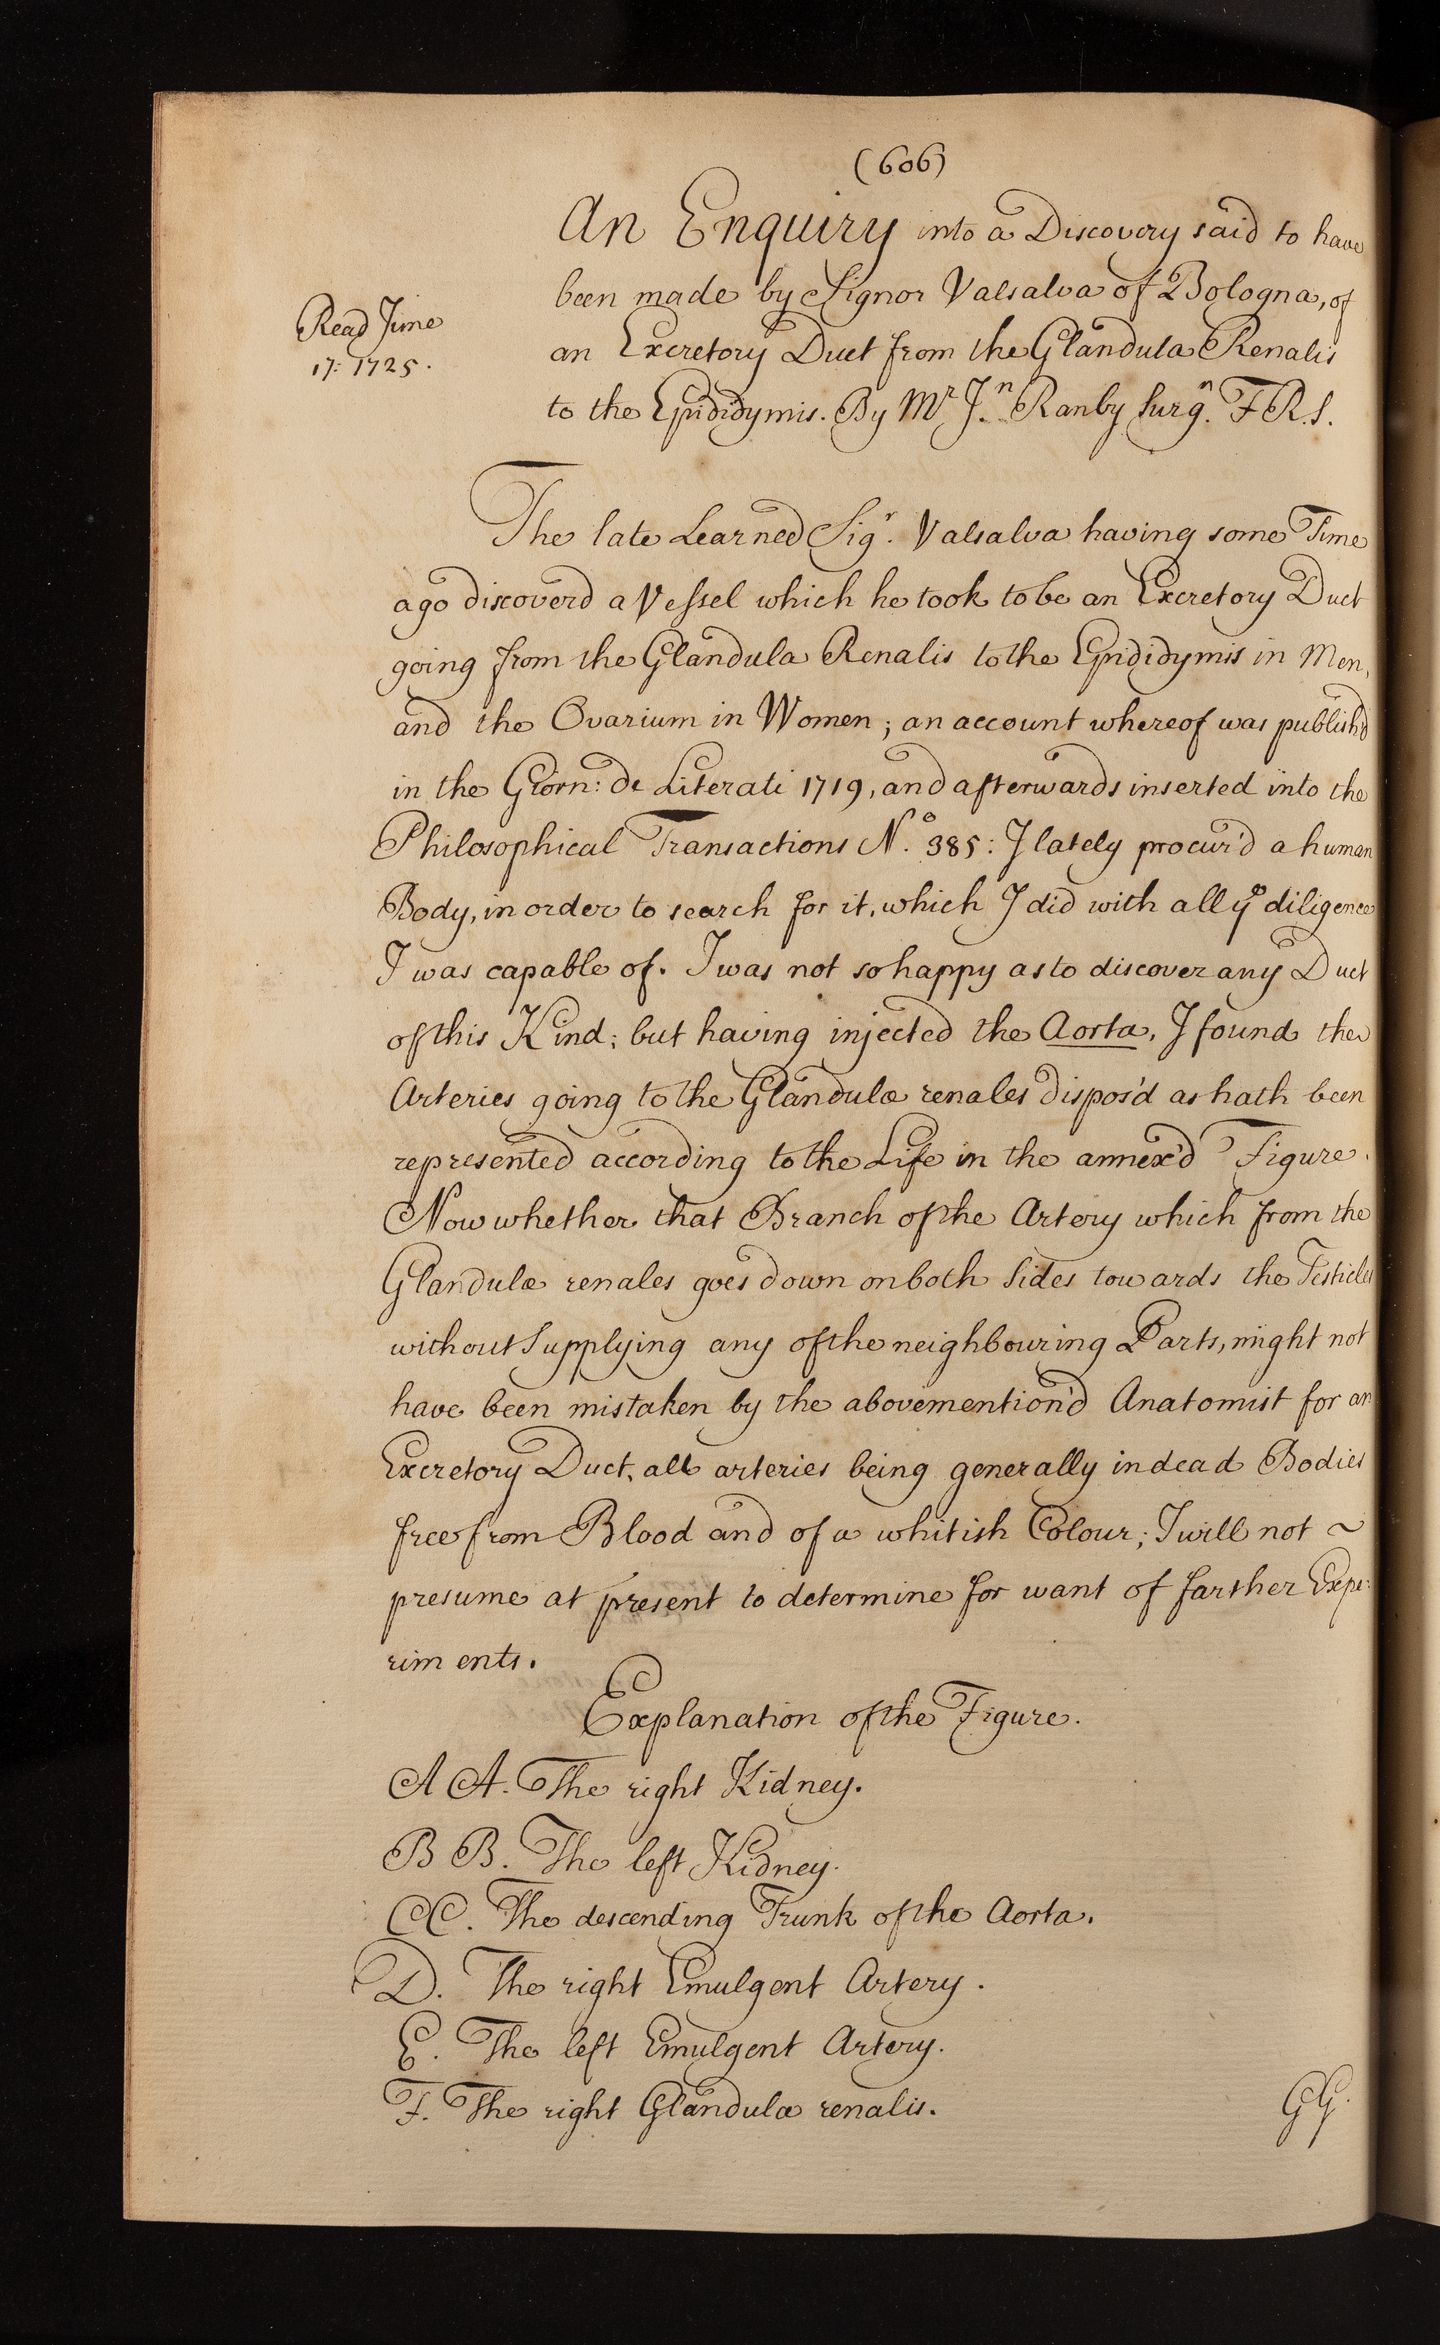 (606)
An Enquiry into a Discovery said to have
been made by Signor Valsalva of Bologna, of
Read June
an Excretory Duct from the Glandula Renalis
17: 1725.
to the Epididymis. By Mr Jn. Ranby Surgn. F.R.S.
The late Learned Sigr. Valsalva having some Time
ago discoverd a Vessel which he took to be an Excretory Duct
going from the Glandula Renalis to the Epididymis in Men,
and the Ovarium in Women; an account whereof was publish'd
in the Giorn: de Literati 1719, and afterwards inserted into the
Philosophical Transactions No. 385: I lately procur'd a human
Body, in order to search for it, which I did with all ye diligence
I was capable of. I was not so happy as to discover any Duct
of this Kind; but having injected the Aorta, I found the
Arteries going to the Glandulæ renales dispos'd as hath been
represented according to the Life in the annex'd Figure.
Now whether that Branch of the Artery which from the
Glandulæ renales goes down on both Sides towards the Testicles
without Supplying any of the neighbouring Parts, might not
have been mistaken by the abovemention'd Anatomist for an
Excretory Duct, all arteries being generally in dead Bodies
free from Blood and of a whitish Colour; I will not ~
presume at present to determine for want of farther Expe:
riments.
Explanation of the Figure.
A A. The right Kidney.
B B. The left Kidney.
CC. The descending Trunk of the Aorta.
D. The right Emulgent Artery.
E. The left Emulgent Artery.
F. The right Glandula renalis.
GG.